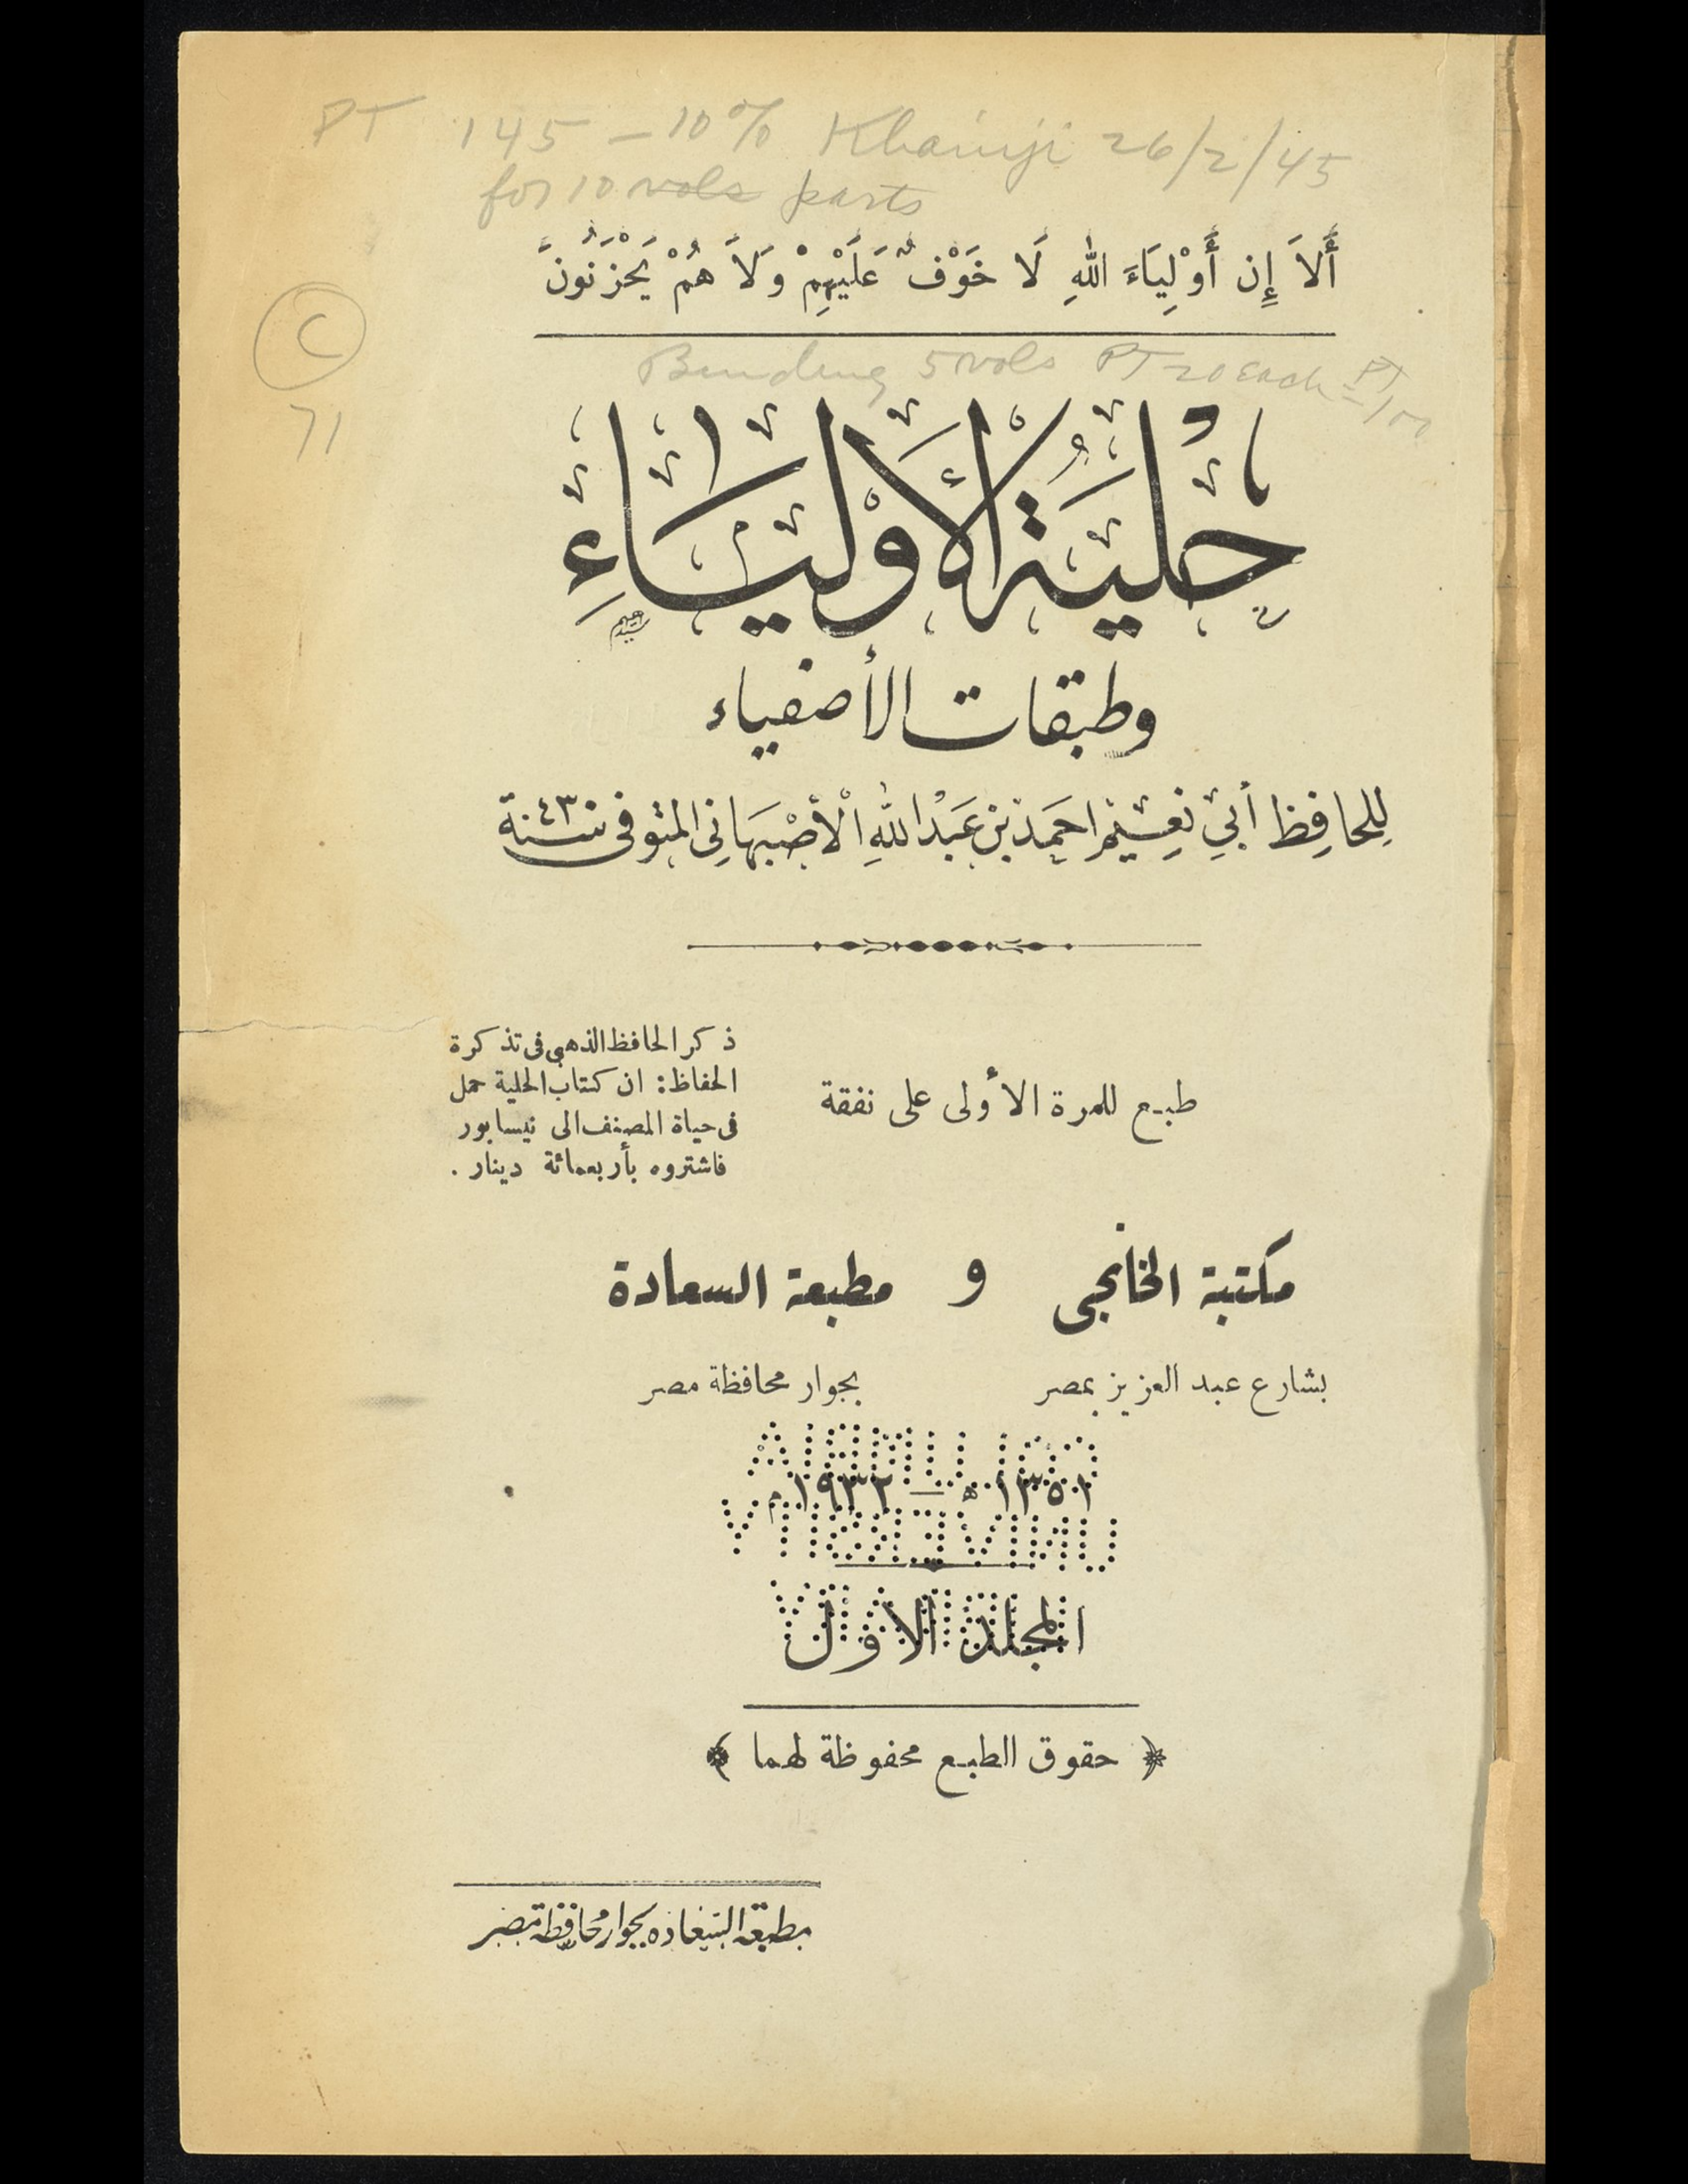 PT 145 - 10% Khaniji 26/2/45
for 10 vols parts
أَلاَ إِن أَوْلِيَاءَ اللهِ لَا خَوْفٌ عَلَيْهِمْ وَلاَ هُمْ يَحْزَنُونَ
C
71
Binding 5 vols PT 20 each = PT
حْلِيَةُ الأَوْلِيَاءِ
وطبقات الأصفياء
لِلحافِظ أَبِي نعيم احمَد بْن عَبْد اللهِ الأصْبهَانِي المتوفى سنة ٤٣٠
ذكر الحافظ الذهبي فى تذكرة
الحفاظ: ان كتاب الحلية حمل
فى حياة المصنف الى نيسابور
فاشتروه بأربعمائة دينار .
طبع للمرة الأولى على نفقة
مكتبة الخانجى و مطبعة السعادة
بشارع عبد العزيز بمصر بجوار محافظة مصر
١٣٥١ ه — ١٩٣٢ م
المجلد الاول
﴿ حقوق الطبع محفوظة لهما ﴾
مطبعة السعادة بجوار محافظة مصر